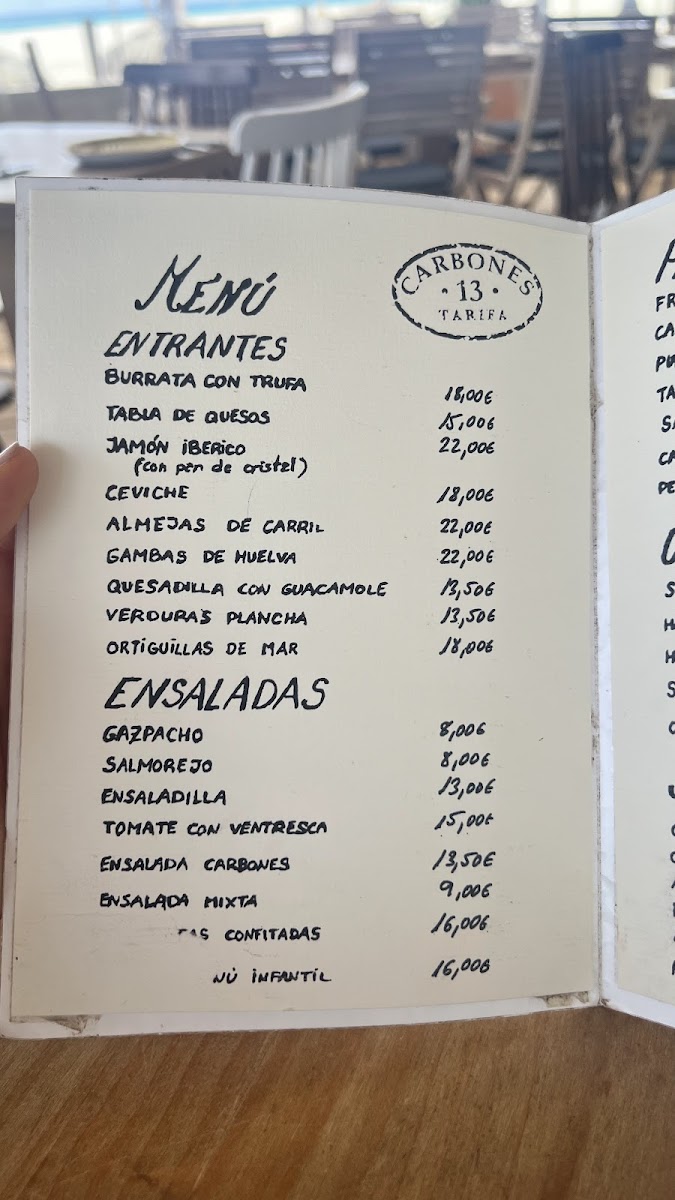 MENÚ
CARBONES
· 13 ·
TARIFA
ENTRANTES
BURRATA CON TRUFA 18,00€
TABLA DE QUESOS 15,00€
JAMÓN IBERICO 22,00€
(con pan de cristal)
CEVICHE 18,00€
ALMEJAS DE CARRIL 22,00€
GAMBAS DE HUELVA 22,00€
QUESADILLA CON GUACAMOLE 13,50€
VERDURAS PLANCHA 13,50€
ORTIGUILLAS DE MAR 18,00€
ENSALADAS
GAZPACHO 8,00€
SALMOREJO 8,00€
ENSALADILLA 13,00€
TOMATE CON VENTRESCA 15,00€
ENSALADA CARBONES 13,50€
ENSALADA MIXTA 9,00€
CONFITADAS 16,00€
NÚ INFANTIL 16,00€
FR
CA
TA
CA
PE